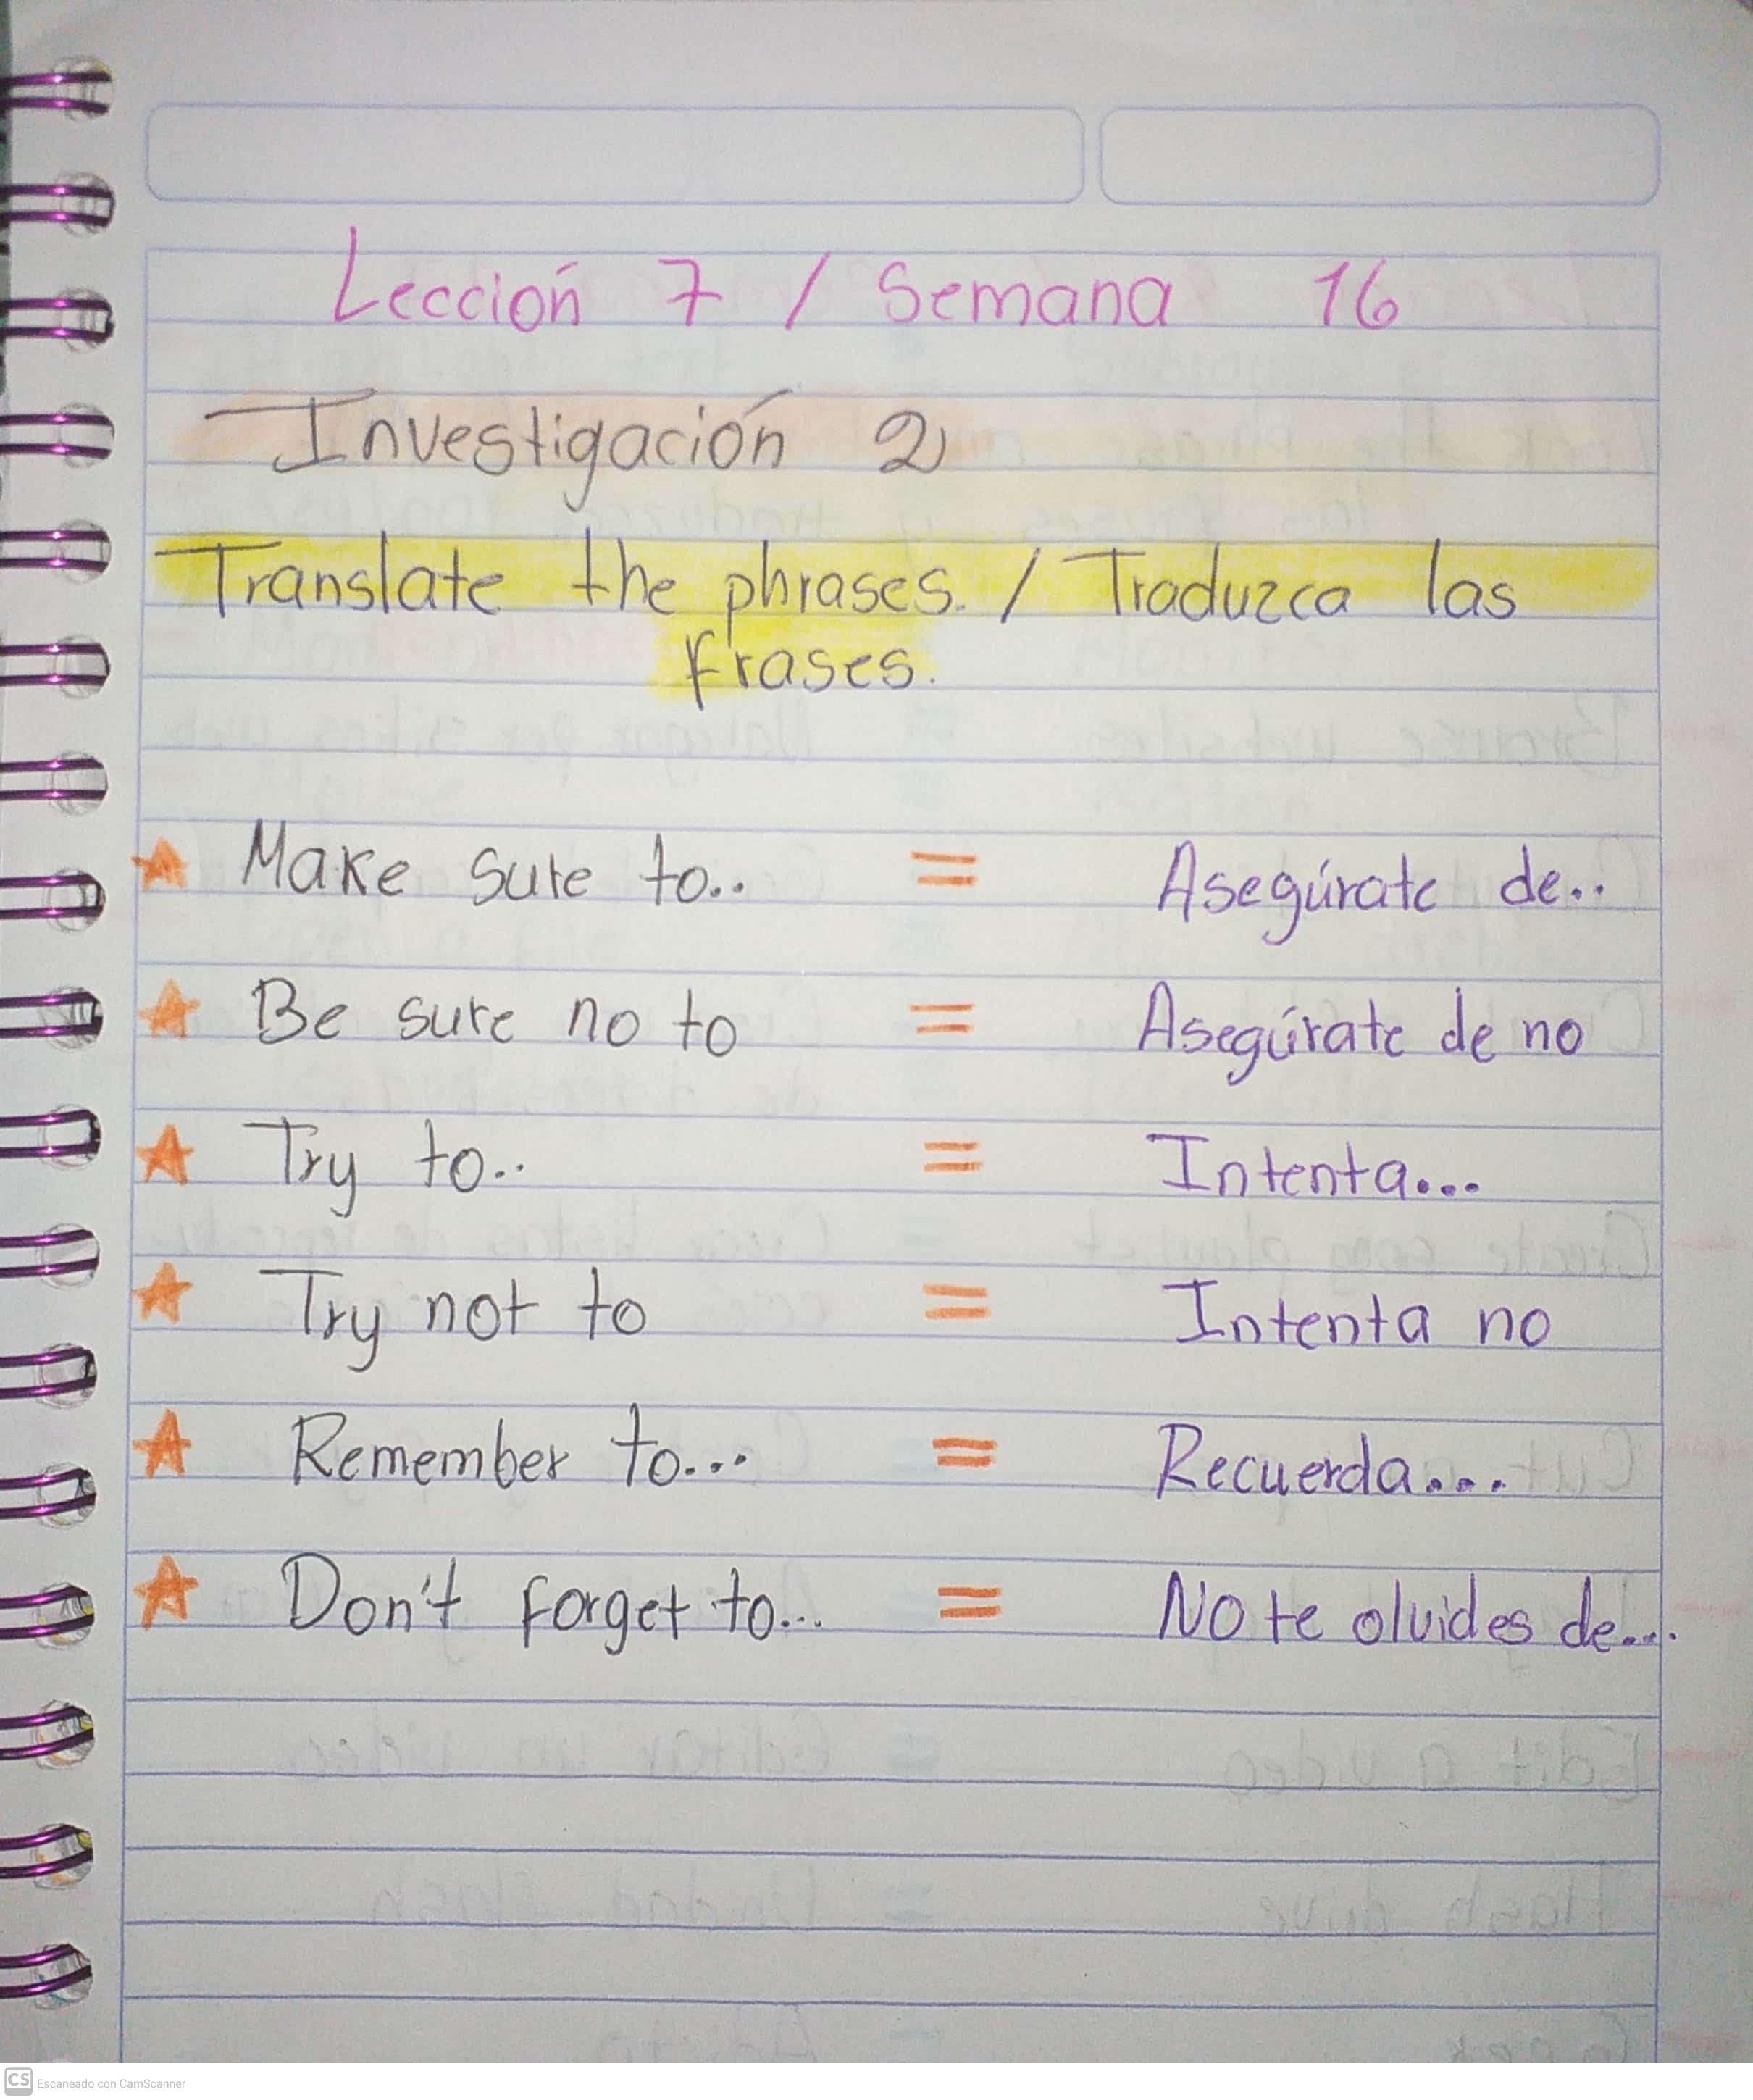 Lección 7 / Semana 16
Investigación 2
Translate the phrases. / Traduzca las
frases.
Make sure to.. = Asegúrate de..
Be sure no to = Asegúrate de no
Try to.. = Intenta...
Try not to = Intenta no
Remember to... = Recuerda....
Don't forget to... = No te olvides de....
CS Escaneado con CamScanner